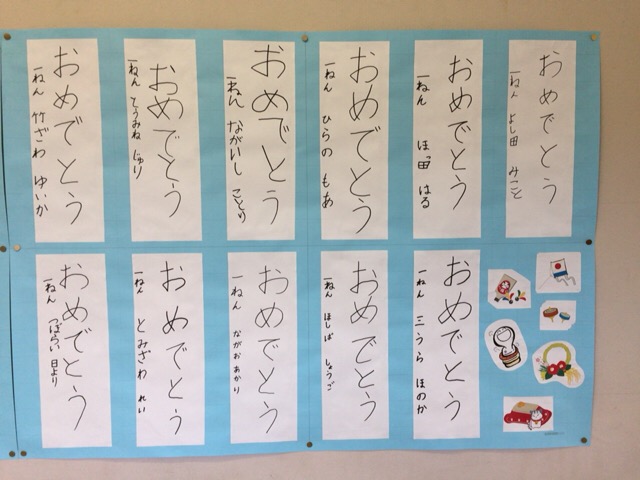 おめでとう
一ねん よし田 みこと
おめでとう
一ねん ほっ田 はる
おめでとう
一ねん ひらの もあ
おめでとう
一ねん ながいし ことり
おめでとう
一ねん じゅり
おめでとう
一ねん 竹ざわ ゆいか
おめでとう
一ねん 三うら ほのか
おめでとう
一ねん ほしば しょうご
おめでとう
一ねん ながお あかり
おめでとう
一ねん とみざわ れい
おめでとう
一ねん つばらい 日より